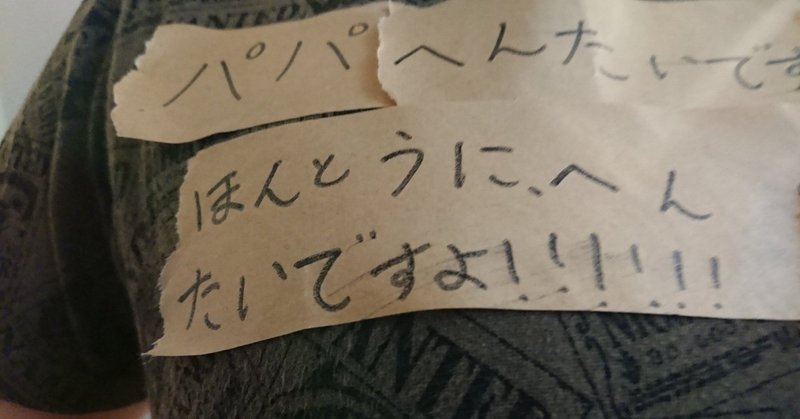 パパへんたいです
ほんとうに、へん
たいですよ!!!!!!
WANTED